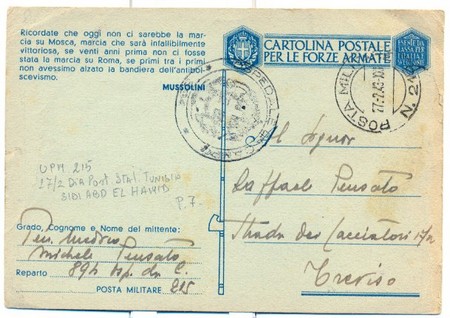 Ricordate che oggi non ci sarebbe la mar-
cia su Mosca, marcia che sarà infallibilmente
vittoriosa, se venti anni prima non ci fosse
stata la marcia su Roma, se primi tra i primi
non avessimo alzato la bandiera dell'antibol-
scevismo.
MUSSOLINI
CARTOLINA POSTALE
PER LE FORZE ARMATE
POSTA MILITARE N. 215
OSPEDALE
UPM 215
17/2 Da Pont Staz. TUNISIA
SIDI ABD EL HAMID
P.7.
Grado, Cognome e Nome del mittente:
Ten. Medico
Michele Pensato
Reparto 894 Osp. da C.
POSTA MILITARE 215
Signor
Raffaele Pensato
Strada dei Cacciatori
Treviso